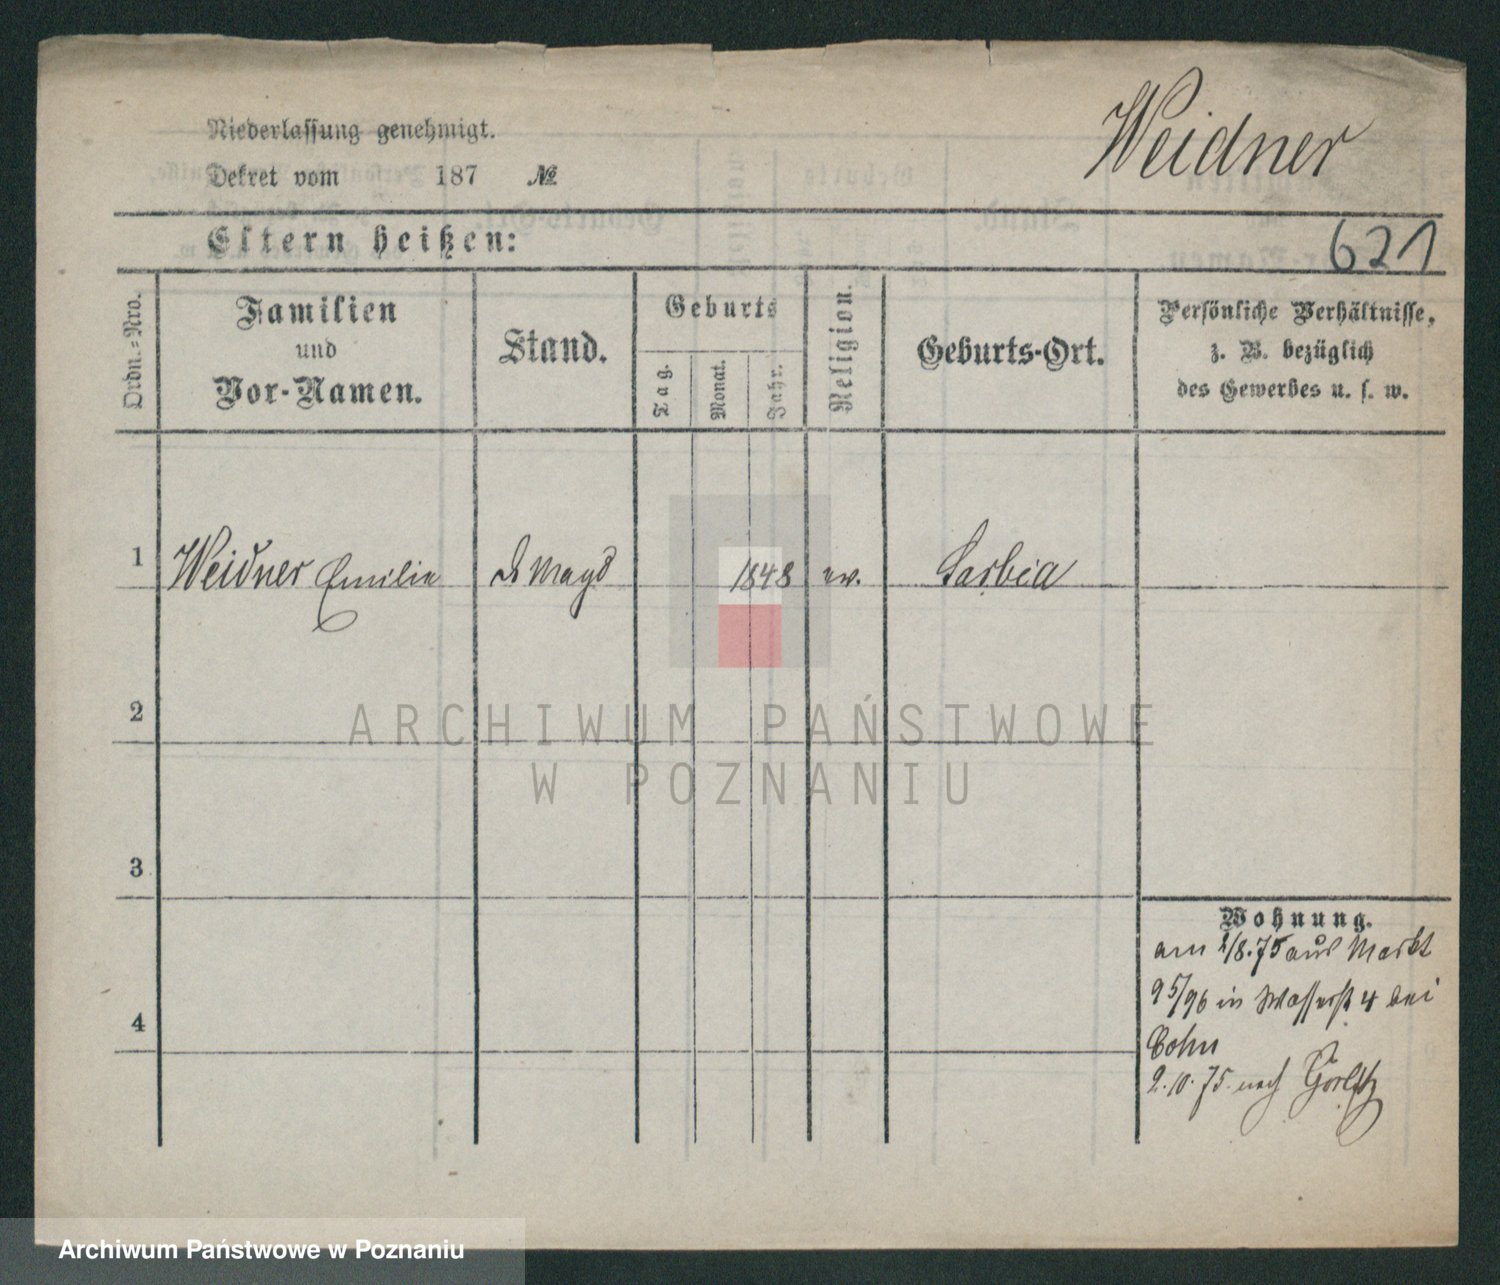 Weidner
Niederlassung genehmigt.
Dekret vom 187 №
Eltern heißen:
621
Ordn.=Nro.
Familien
und
Vor-Namen.
Stand.
Geburts
Tag.
Monat.
Jahr.
Religion.
Geburts-Ort.
Persönliche Verhältnisse,
z. B. bezüglich
des Gewerbes u. s. w.
1 Weidner Emilie Magd 1848 ev. Sarbia
2
ARCHIWUM PAŃSTWOWE
W POZNANIU
3
Wohnung.
am 2/8.75 aus Markt
95/96 in Wasserstr 4 bei
Cohn
4
2.10.75 nach Görlitz
Archiwum Państwowe w Poznaniu